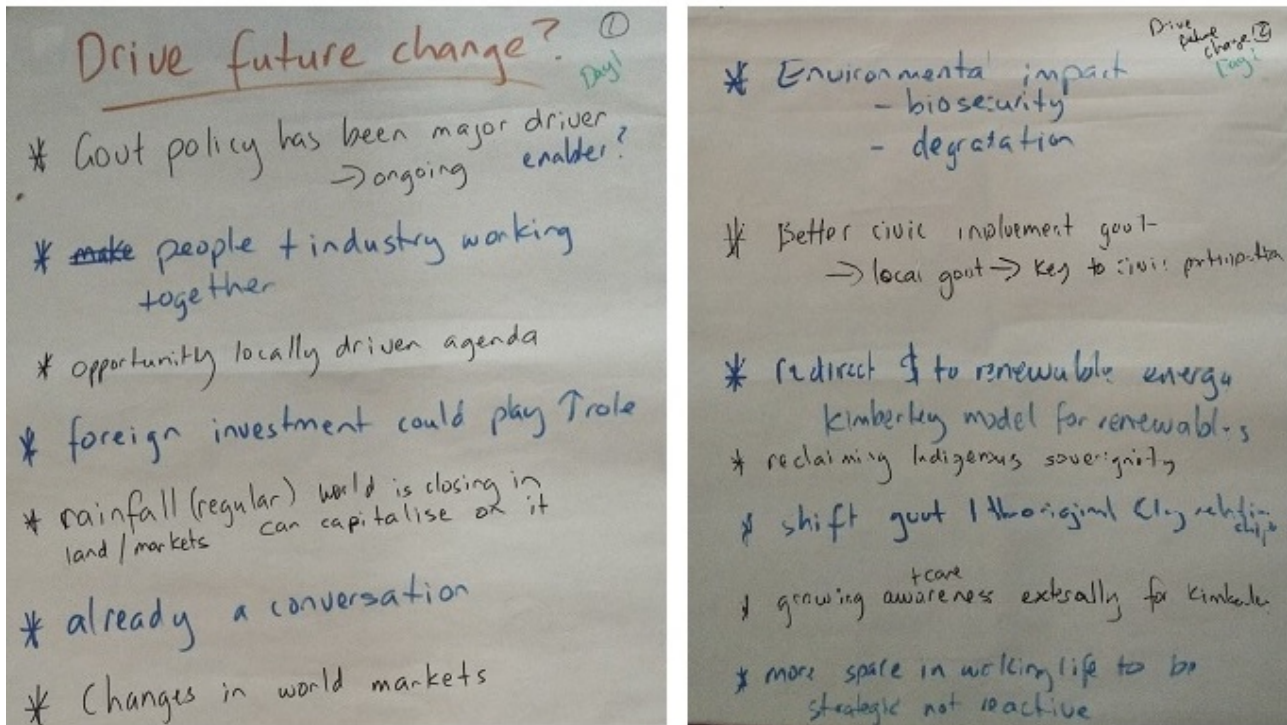 Drive future change? ①
Day 1
* Govt policy has been major driver
→ ongoing enabler?
* make people + industry working
together
* opportunitly locally driven agenda
* foreign investment could play ↑ role
* rainfall (regular) world is closing in
land / markets can capitalise on it
* already a conversation
* Changes in world markets
Drive
future
change? ②
Day 1
* Environmental impact
- biosecurity
- degratation
* Better civic involvement govt
→ local govt → key to civic participation
* redirect $ to renewable energy
Kimberley model for renewables
* reclaiming Indigenous soverignity
* shift govt / Aboriginal
+ care
* growing awareness extesally for Kimberley
* more space in working life to be
strategic not reactive